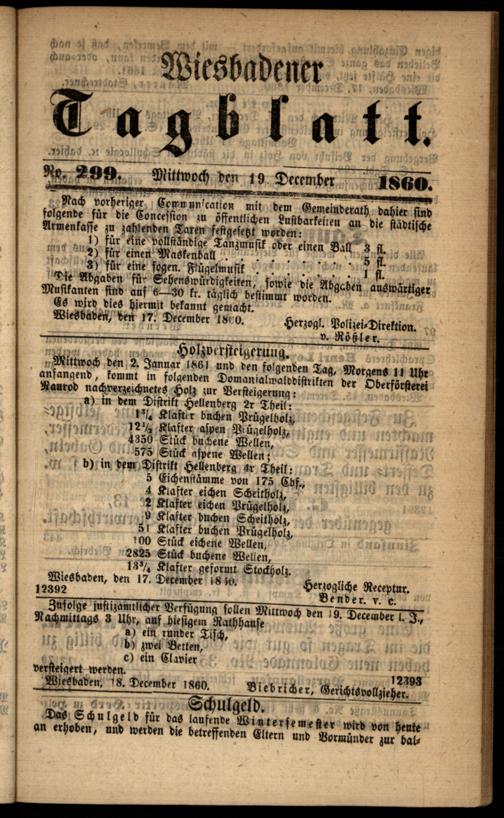 Wiesbadener
Tagblatt.
No. 299. Mittwoch den 19. December 1860.
Nach vorheriger Communication mit dem Gemeinderath dahier sind
folgende für die Concession zu öffentlichen Lustbarkeiten an die städtische
Armenkasse zu zahlenden Taxen festgesetzt worden:
1) für eine vollständige Tanzmusik oder einen Ball 3 fl.
2) für einen Maskenball . . . . . 5 fl.
3) für eine sogen. Flügelmusik . . . . . 1 fl.
Die Abgaben für Sehenswürdigkeiten, sowie die Abgaben auswärtiger
Musikanten sind auf 6—30 kr. täglich bestimmt worden.
Es wird dies hiermit bekannt gemacht.
Wiesbaden, den 17. December 1860. Herzogl. Polizei-Direktion.
v. Rößler.
Holzversteigerung.
Mittwoch den 2. Januar 1861 und den folgenden Tag, Morgens 11 Uhr
anfangend, kommt in folgenden Domanialwalddistrikten der Oberförsterei
Naurod nachverzeichnetes Holz zur Versteigerung:
a) in dem Distrikt Hellenberg 2r Theil:
Klafter buchen Prügelholz,
12½ Klafter aspen Prügelholz,
4350 Stück buchene Wellen,
575 Stück aspene Wellen;
b) in dem Distrikt Hellenberg 4r Theil:
5 Eichenstämme von 175 Cbf.,
4 Klafter eichen Scheitholz,
2 Klafter eichen Prügelholz,
9 Klafter buchen Scheitholz,
51 Klafter buchen Prügelholz,
100 Stück eichene Wellen,
2825 Stück buchene Wellen,
13¾ Klafter geformt Stockholz.
Wiesbaden, den 17. December 1860. Herzogliche Receptur.
12392 Bender. v. c.
Zufolge justizamtlicher Verfügung sollen Mittwoch den 19. December l. J.,
Nachmittags 3 Uhr, auf hiesigem Rathhause
a) ein runder Tisch,
b) zwei Betten,
c) ein Clavier
versteigert werden. 12393
Wiesbaden, 18. December 1860. Biebricher, Gerichtsvollzieher.
Schulgeld.
Das Schulgeld für das laufende Wintersemester wird von heute
an erhoben, und werden die betreffenden Eltern und Vormünder zur bal-